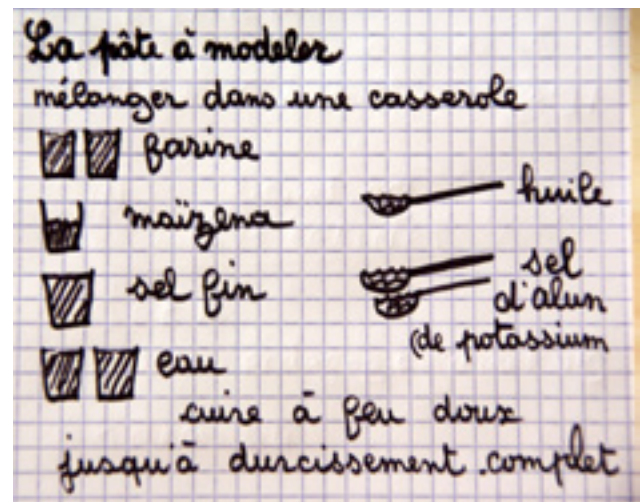 La pâte à modeler
mélanger dans une casserole
farine
maïzena
sel fin
eau
huile
sel
d'alun
(de potassium
cuire à feu doux
jusqu'à durcissement complet